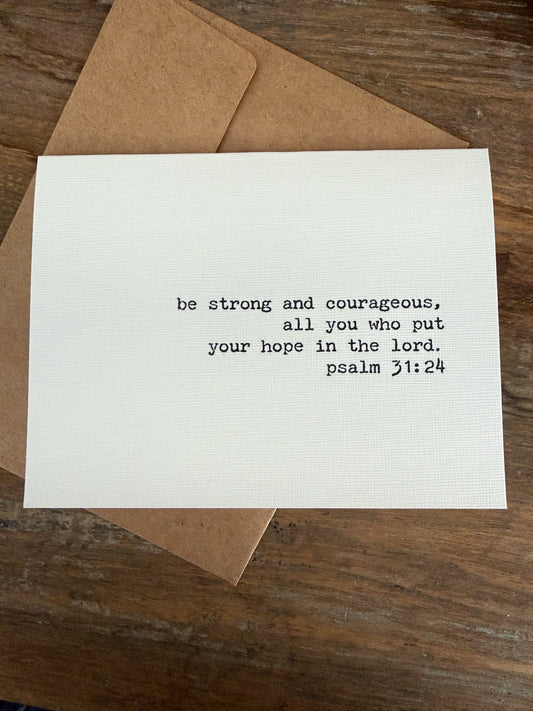 be strong and courageous,
all you who put
your hope in the lord.
psalm 31:24